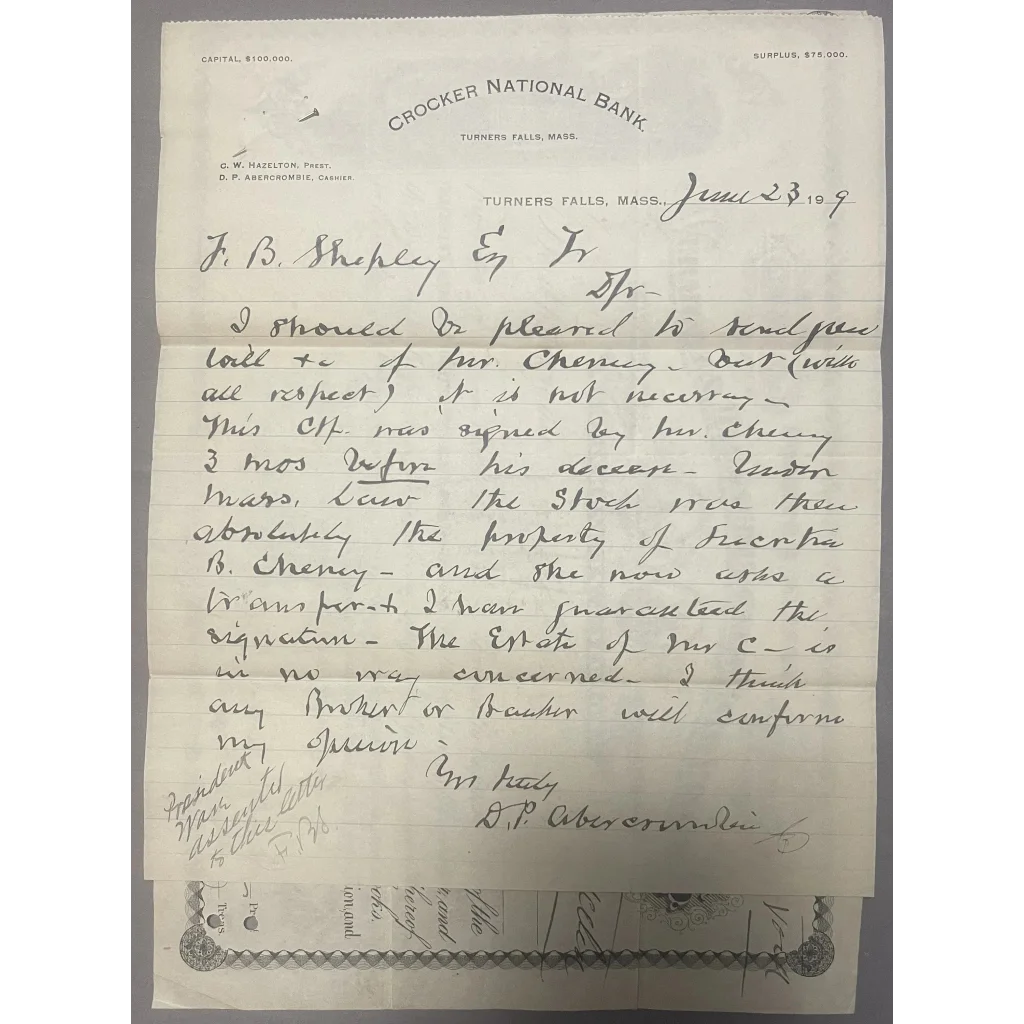 CAPITAL, $100,000.
SURPLUS, $75,000.
CROCKER NATIONAL BANK.
TURNERS FALLS, MASS.
C. W. HAZELTON, PREST.
D. P. ABERCROMBIE, CASHIER.
TURNERS FALLS, MASS., June 23 19 9
F. B. Shepley Esq Tr
D/r-
I should be pleased to send you
will &c of Mr. Cheney - but (with
all respect) it is not necessary -
This Ctf. was signed by Mr. Cheney
3 mos before his decease - Under
Mass. Law the Stock was then
absolutely the property of Lucretia
B. Cheney - and she now asks a
transfer - & I have guaranteed the
signature - The Estate of Mr C - is
in no way concerned - I think
any Broker or Banker will confirm
my opinion -
Yrs truly
D. P. Abercrombie
President
Wash
assented
to this letter
F.B.S.
of the
and
hereof
ion, and
Treas